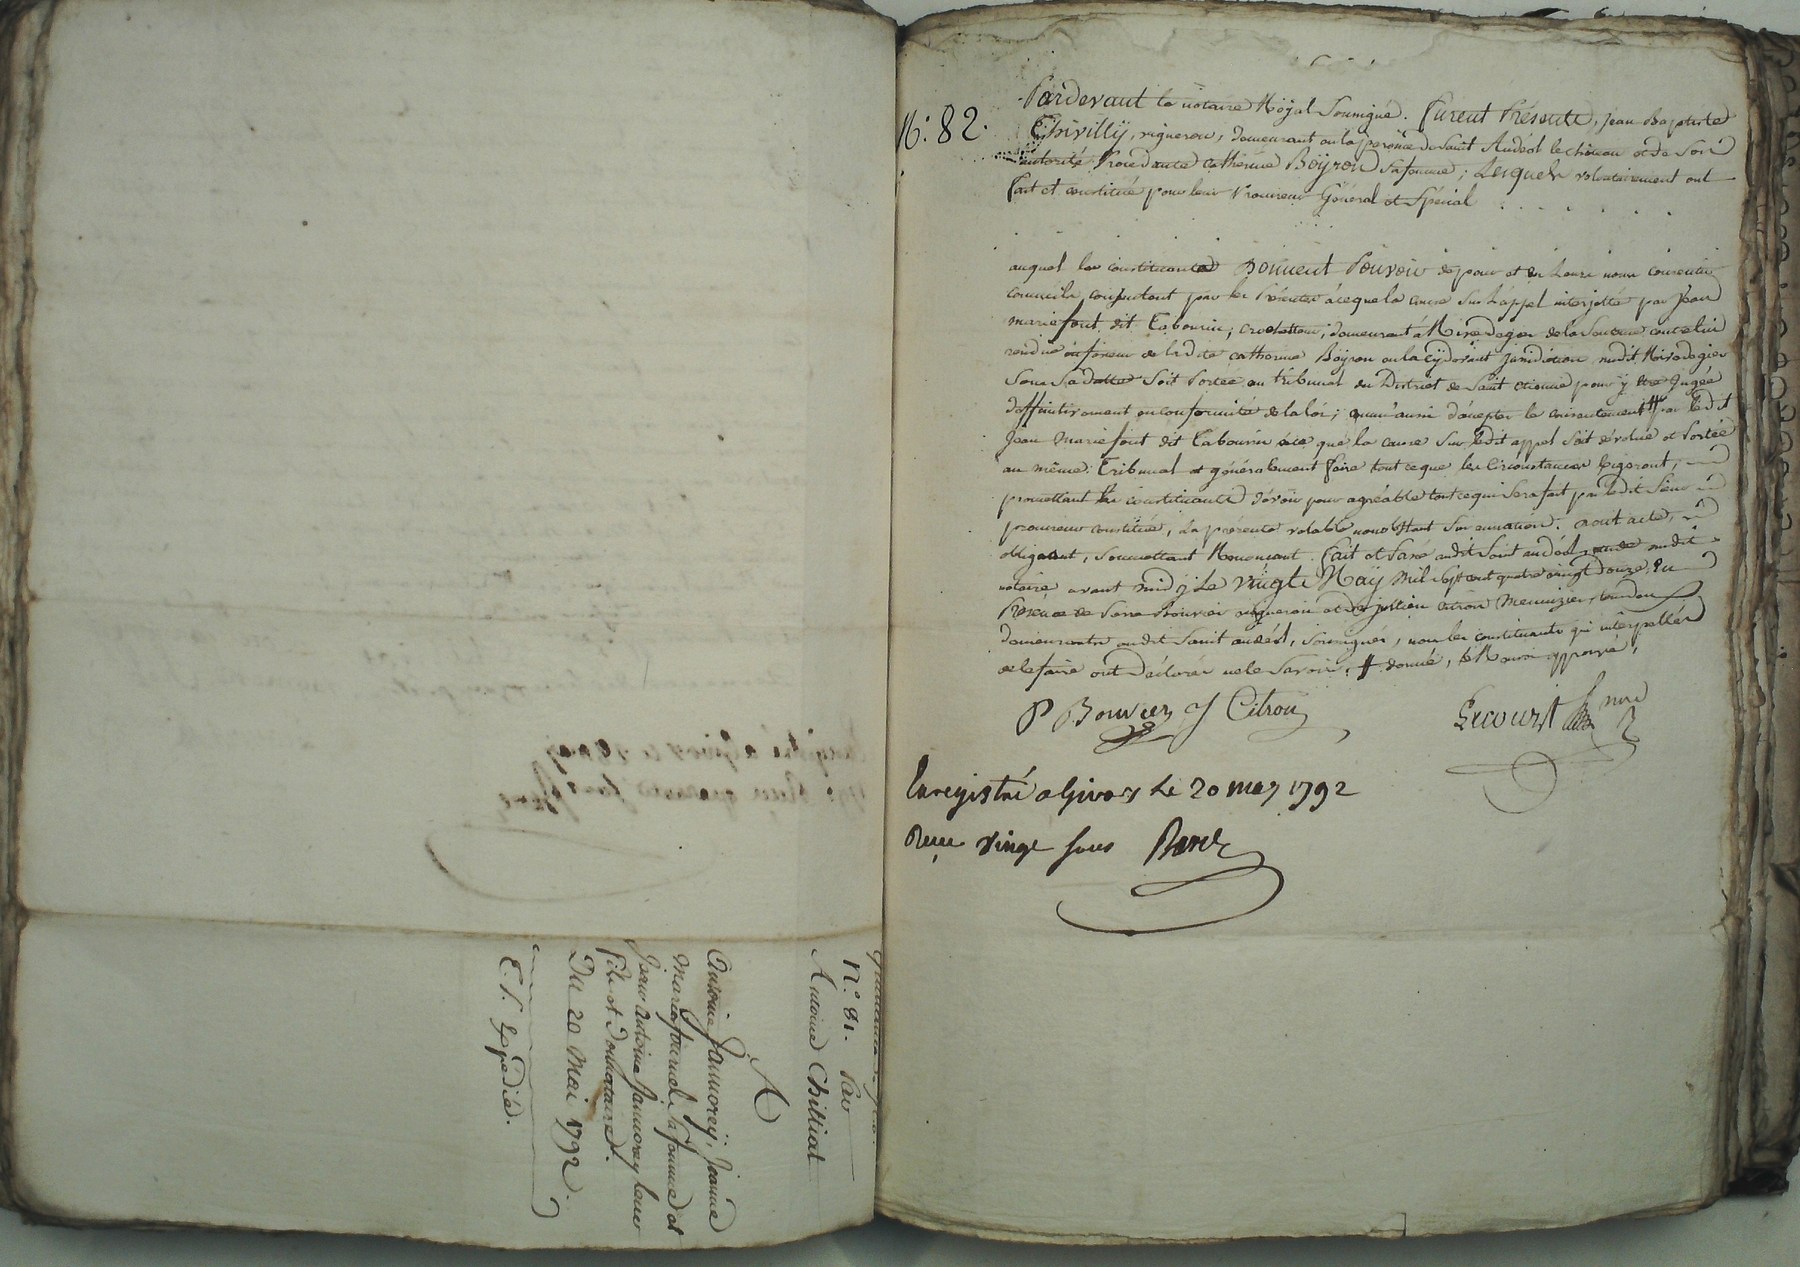 quittance
N.° 81. Par
Antoine Chilliat
A
Antoine Jamorey, Jeanne
Marie fournel sa femme et
Jean Antoine Jamorey leur
fils et donnataire.
Du 20 Mai 1792.
E. P. Expédié.
N.° 82.
Pardevant le notaire Royal Soussigné. Furent Présents, Jean Baptiste
Chivillÿ, vigneron, demeurant en la paroisse de Saint Andéol le chateau et de Son
autorité Procedante Catherine Boÿron Sa femme; Lesquels volontairement ont
fait et constitué pour leur Procureur Général et Spécial . . . . . .
auquel les constituants Donnent Pouvoir de pour et en Leurs noms
consentir par les Présentes à ce que la cause Sur L'appel interjetté par Jean
marie font dit Tabourin, demeurant à Rivedegier de la Sentence contre lui
rendue en faveur de ladite Catherine Boÿron en la cÿdevant Juridiction dudit Rivedegier
Sous Sa datte Soit Portée au tribunal du District de Saint etienne pour ÿ être Jugée
deffinitivement en conformité de la loi; comm'aussi d'accepter le consentement # par ledit
Jean Marie font dit Tabourin à ce que la cause Sur ledit appel Soit dévolue et Portée
au même Tribunal et généralement faire tout ce que les Circonstances Exigeront,
promettant les constituants d'avoir pour agréable tout ce qui Sera fait par ledit Sieur
procureur constitué, La présente valable nonobstant Surannation. Dont acte,
obligeant, Soumettant Renonçant. Fait et Passé audit Saint andéol étude dudit
notaire avant midÿ Le Vingt Maÿ Mil Sept cent quatre vingt douze, En
Présence de Pierre Bouvier vigneron et de Jullien Citron Menuizier,
demeurants audit Saint andéol, Soussignés, non les constituants qui interpellés
de le faire ont Déclarés ne le Savoir, # donné, le Renvoi approuvé,
P Bouvier J Citron
Lecourt nre
Enregistré a Givors Le 20 may 1792
Reçu vingt Sous